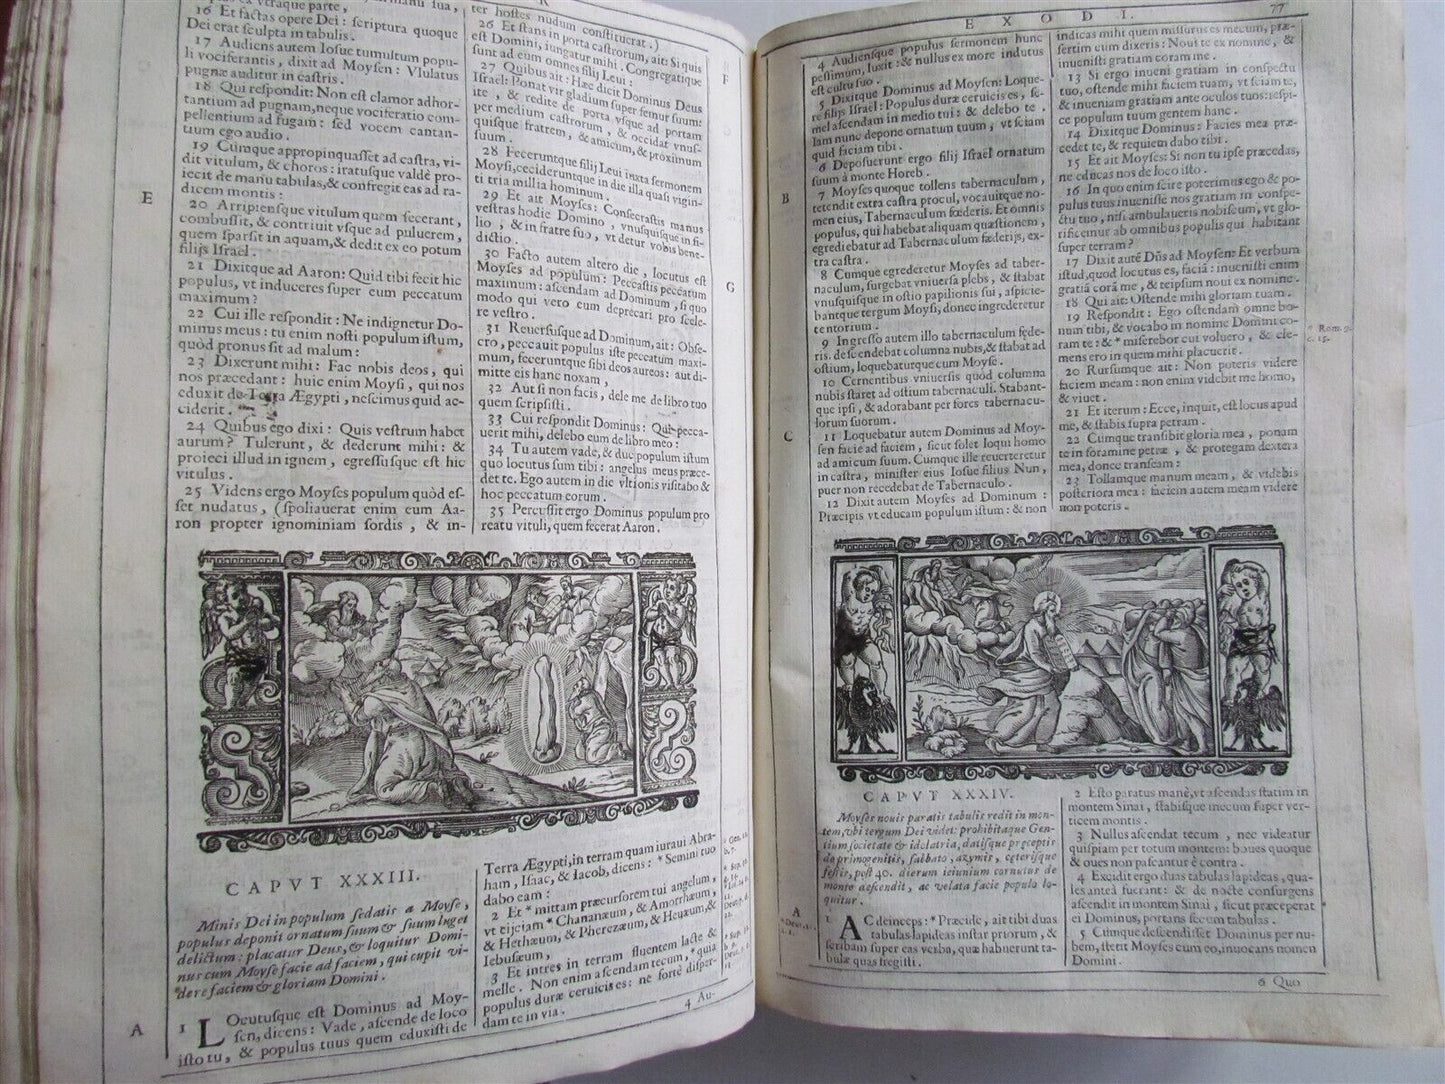 R
16 Et factas opere Dei : scriptura quoque
Dei erat sculpta in tabulis.
17 Audiens autem Iosue tumultum popu-
li vociferantis, dixit ad Moysen: Vlulatus
pugnæ auditur in castris.
18 Qui respondit: Non est clamor adhor-
tantium ad pugnam, neque vociferatio com-
pellentium ad fugam: sed vocem cantan-
tium ego audio.
19 Cùmque appropinquasset ad castra, vi-
dit vitulum, & choros: iratusque valdè pro-
iecit de manu tabulas, & confregit eas ad ra-
dicem montis :
E
20 Arripiensque vitulum quem fecerant,
combussit, & contriuit vsque ad puluerem,
quem sparsit in aquam, & dedit ex eo potum
filijs Israel.
21 Dixitque ad Aaron: Quid tibi fecit hic
populus, vt induceres super eum peccatum
maximum?
22 Cui ille respondit: Ne indignetur Do-
minus meus: tu enim nosti populum istum,
quòd pronus sit ad malum:
23 Dixerunt mihi: Fac nobis deos, qui
nos præcedant: huic enim Moysi, qui nos
eduxit de Terra Ægypti, nescimus quid ac-
ciderit.
24 Quibus ego dixi: Quis vestrum habet
aurum? Tulerunt, & dederunt mihi: &
proieci illud in ignem, egressusque est hic
vitulus.
25 Videns ergo Moyses populum quòd es-
set nudatus, (spoliauerat enim eum Aa-
ron propter ignominiam sordis, & in-
ter hostes nudum constituerat.)
26 Et stans in porta castrorum, ait: Si quis
est Domini, iungatur mihi. Congregatique
sunt ad eum omnes filij Leui:
F
27 Quibus ait: Hæc dicit Dominus Deus
Israel: Ponat vir gladium super femur suum:
ite, & redite de porta vsque ad portam
per medium castrorum, & occidat vnus-
quisque fratrem, & amicum, & proximum
suum.
28 Feceruntque filij Leui iuxta sermonem
Moysi, cecideruntque in die illa quasi vigin-
ti tria millia hominum.
29 Et ait Moyses: Consecrastis manus
vestras hodie Domino, vnusquisque in fi-
lio, & in fratre suo, vt detur vobis bene-
dictio.
30 Facto autem altero die, locutus est
Moyses ad populum: Peccastis peccatum
maximum: ascendam ad Dominum, si quo
modo qui vero eum deprecari pro scele-
re vestro.
G
31 Reuersusque ad Dominum, ait: Obse-
cro, peccauit populus iste peccatum maxi-
mum, feceruntque sibi deos aureos: aut di-
mitte eis hanc noxam,
32 Aut si non facis, dele me de libro tuo
quem scripsisti.
33 Cui respondit Dominus: Qui pecca-
uerit mihi, delebo eum de libro meo:
34 Tu autem vade, & duc populum istum
quo locutus sum tibi: angelus meus præce-
det te. Ego autem in die vltionis visitabo &
hoc peccatum eorum.
35 Percussit ergo Dominus populum pro
reatu vituli, quem fecerat Aaron.
CAPVT XXXIII.
Minis Dei in populum sedatis a Moyse,
populus deponit ornatum suum & suum luget
delictum: placatur Deus, & loquitur Domi-
nus cum Moyse facie ad faciem, qui cupit vi-
dere faciem & gloriam Domini.
A
1 LOcutusque est Dominus ad Moy-
sen, dicens: Vade, ascende de loco
isto tu, & populus tuus quem eduxisti de
Terra Ægypti, in terram quam iuraui Abra-
ham, Isaac, & Iacob, dicens: * Semini tuo
dabo eam:
2 Et * mittam præcursorem tui angelum,
vt eijciam * Chananæum, & Amorrhæum,
& Hethæum, & Pherezæum, & Heuæum, &
Iebusæum,
3 Et intres in terram fluentem lacte &
melle. Non enim ascendam tecum, * quia
populus duræ ceruicis es: ne fortè disper-
dam te in via.
4 Au-
EXODI.
77
4 Audiensque populus sermonem hunc
pessimum, luxit: & nullus ex more indutus
est cultu suo.
5 Dixitque Dominus ad Moysen: Loque-
re filijs Israel: Populus duræ ceruicis es, se-
mel ascendam in medio tui: & delebo te.
Iam nunc depone ornatum tuum, vt sciam
quid faciam tibi.
6 Deposuerunt ergo filij Israel ornatum
suum à monte Horeb.
B
7 Moyses quoque tollens tabernaculum,
tetendit extra castra procul, vocauitque no-
men eius, Tabernaculum fœderis. Et omnis
populus, qui habebat aliquam quæstionem,
egrediebatur ad Tabernaculum fœderis, ex-
tra castra.
8 Cùmque egrederetur Moyses ad taber-
naculum, surgebat vniuersa plebs, & stabat
vnusquisque in ostio papilionis sui, aspicie-
bantque tergum Moysi, donec ingrederetur
tentorium.
9 Ingresso autem illo tabernaculum fœde-
ris. descendebat columna nubis, & stabat ad
ostium, loquebaturque cum Moyse.
10 Cernentibus vniuersis quòd columna
nubis staret ad ostium tabernaculi. Stabant-
que ipsi, & adorabant per fores tabernacu-
lorum suorum.
C
11 Loquebatur autem Dominus ad Moy-
sen facie ad faciem, sicut solet loqui homo
ad amicum suum. Cùmque ille reuerteretur
in castra, minister eius Iosue filius Nun,
puer non recedebat de Tabernaculo.
12 Dixit autem Moyses ad Dominum:
Præcipis vt educam populum istum: & non
indicas mihi quem missurus es mecum, præ-
sertim cum dixeris: Noui te ex nomine, &
inuenisti gratiam coram me.
13 Si ergo inueni gratiam in conspectu
tuo, ostende mihi faciem tuam, vt sciam te,
& inueniam gratiam ante oculos tuos: respi-
ce populum tuum gentem hanc.
14 Dixitque Dominus: Facies mea præ-
cedet te, & requiem dabo tibi.
15 Et ait Moyses: Si non tu ipse præcedas,
ne educas nos de loco isto.
16 In quo enim scire poterimus ego & po-
pulus tuus inuenisse nos gratiam in conspe-
ctu tuo, nisi ambulaueris nobiscum, vt glo-
rificemur ab omnibus populis qui habitant
super terram?
17 Dixit autē Dñs ad Moysen: Et verbum
istud, quod locutus es, faciā: inuenisti enim
gratiā corā me, & teipsum noui ex nomine.
18 Qui ait: Ostende mihi gloriam tuam.
19 Respondit: Ego ostendam omne bo-
num tibi, & vocabo in nomine Domini co-
ram te: & * miserebor cui voluero, & cle-
mens ero in quem mihi placuerit.
* Rom. 9.
c. 15.
20 Rursumque ait: Non poteris videre
faciem meam: non enim videbit me homo,
& viuet.
21 Et iterum: Ecce, inquit, est locus apud
me, & stabis supra petram.
22 Cùmque transibit gloria mea, ponam
te in foramine petræ, & protegam dextera
mea, donec transeam:
23 Tollamque manum meam, & videbis
posteriora mea: faciem autem meam videre
non poteris.
CAPVT XXXIV.
Moyses nouis paratis tabulis redit in mon-
tem, vbi tergum Dei videt: prohibitaque Gen-
tium societate & idolatria, datisque præceptis
de primogenitis, sabbato, azymis, ceterisque
festis, post 40. dierum ieiunium cornutus de
monte descendit, ac velata facie populo lo-
quitur.
A
1 AC deinceps: * Præcide, ait tibi duas
tabulas lapideas instar priorum, &
scribam super eas verba, quæ habuerunt ta-
bulæ quas fregisti.
2 Esto paratus manè, vt ascendas statim in
montem Sinai, stabisque mecum super ver-
ticem montis.
3 Nullus ascendat tecum, nec videatur
quispiam per totum montem: boues quoque
& oues non pascantur è contra.
4 Excidit ergo duas tabulas lapideas, qua-
les anteà fuerant: & de nocte consurgens
ascendit in montem Sinai, sicut præceperat
ei Dominus, portans secum tabulas.
5 Cùmque descendisset Dominus per nu-
bem, stetit Moyses cum eo, inuocans nomen
Domini.
6 Quo